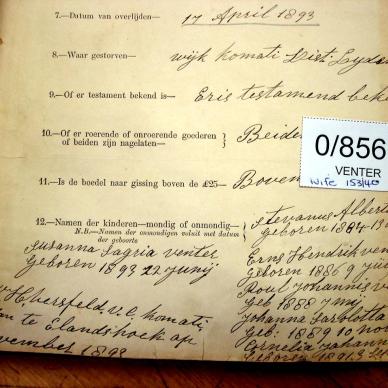 7.—Datum van overlijden— 17 April 1893
8.—Waar gestorven— wijk Komati Dist. Lyden
9.—Of er testament bekend is— Er is testament beke
10.—Of er roerende of onroerende goederen
of beiden zijn nagelaten— Beide
0/856
VENTER
Wife 153/40
11.—Is de boedel naar gissing boven de £25— Boven
12.—Namen der kinderen—mondig of onmondig—
N.B.—Namen der onmondigen voluit met datum
der geboorte
Stevanus Albert
Geboren 1884
Susanna Sagria venter
Geboren 1893 22 Junij
Erns Hendrik ven
Geboren 1886 9
Poul Johannis v
Geb 1888
Johanna
Geb. 1889 10 nov
Cornelia Johann
Geboren 1891 3
Hersfeld v.c. Komati
te Elandshoek op
vember 1893